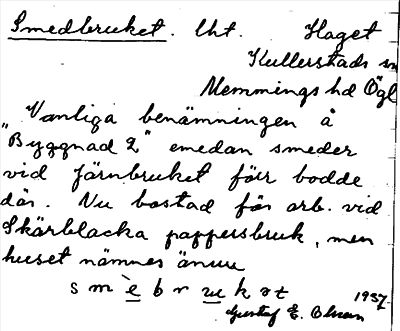 Smedbruket. Uht. Haget
Kullerstads sn
Memmings hd Ögl
Vanliga benämningen å
"Byggnad 2" emedan smeder
vid Järnbruket förr bodde
där. Nu bostad för arb. vid
Skärblacka pappersbruk, men
huset nämnes ännu
s m è b r u k e t 1937
Gustaf E. Olsson